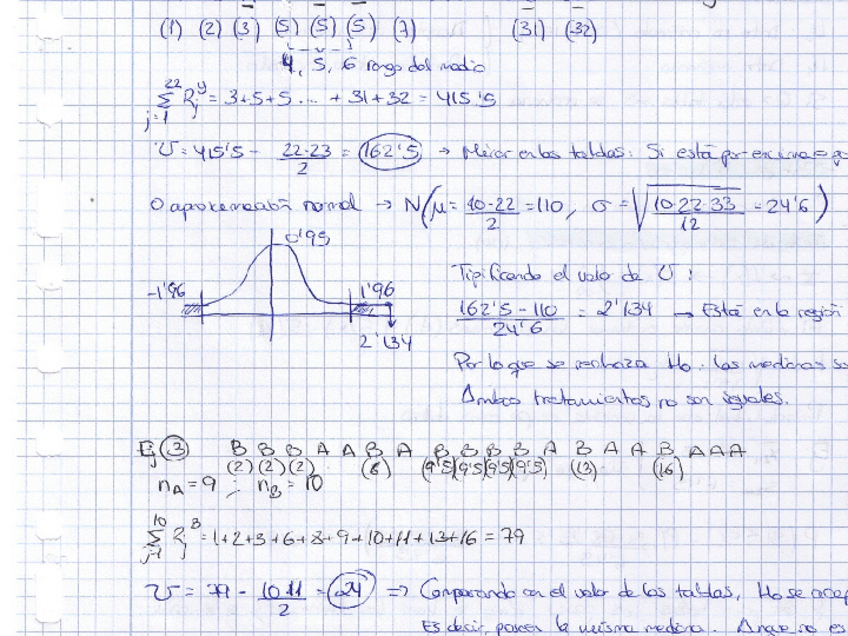 (1) (2) (3) (5) (5) (5) (7) (31) (32)
4, 5, 6 rango del medio
22 Σ j=1 R_j^y = 3+5+5 .... + 31+32 = 415'5
U = 415'5 - 22·23/2 = 162'5 → Mirar en las tablas: Si está por encima
O aproximación normal → N(μ = 10·22/2 = 110, σ = √(10·22·33/12) = 24'6)
0'95
-1'96 1'96
2'134
Tipificando el valor de U:
(162'5 - 110)/24'6 = 2'134 → Está en la región
Por lo que se rechaza Ho. Las medianas
Ambos tratamientos no son iguales.
Ej (3) B B B A A B A B B B B A B A A B A A A
(2) (2) (2) (6) (9'5)(9'5)(9'5)(9'5) (13) (16)
n_A = 9 ; n_B = 10
10 Σ j=1 R_j^B = 1+2+3+6+8+9+10+11+13+16 = 79
U = 79 - 10·11/2 = 24 ⇒ Comparando con el valor de las tablas, Ho se
Es decir, poseen la misma mediana. Aunque no es